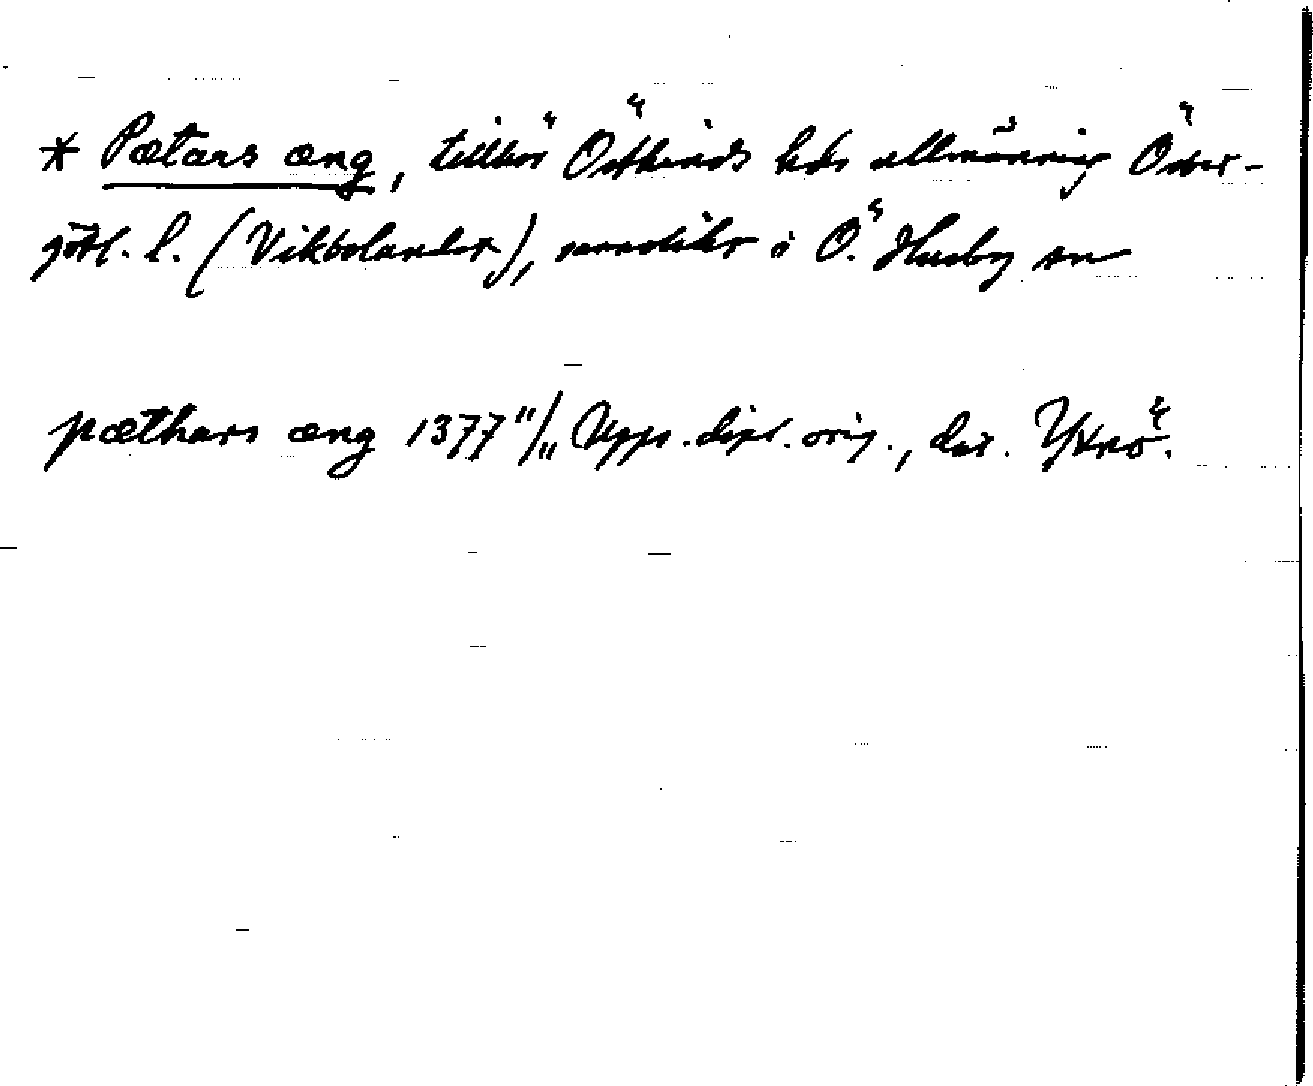 * Pætars æng, tillhör Östkinds hds allmänning Öster-
götl. l. (Vikbolandet), sannolikt i Ö. Husby sn
pæthars æng 1377 11/11 Upps. dipl. orig., dat. Yttrö.